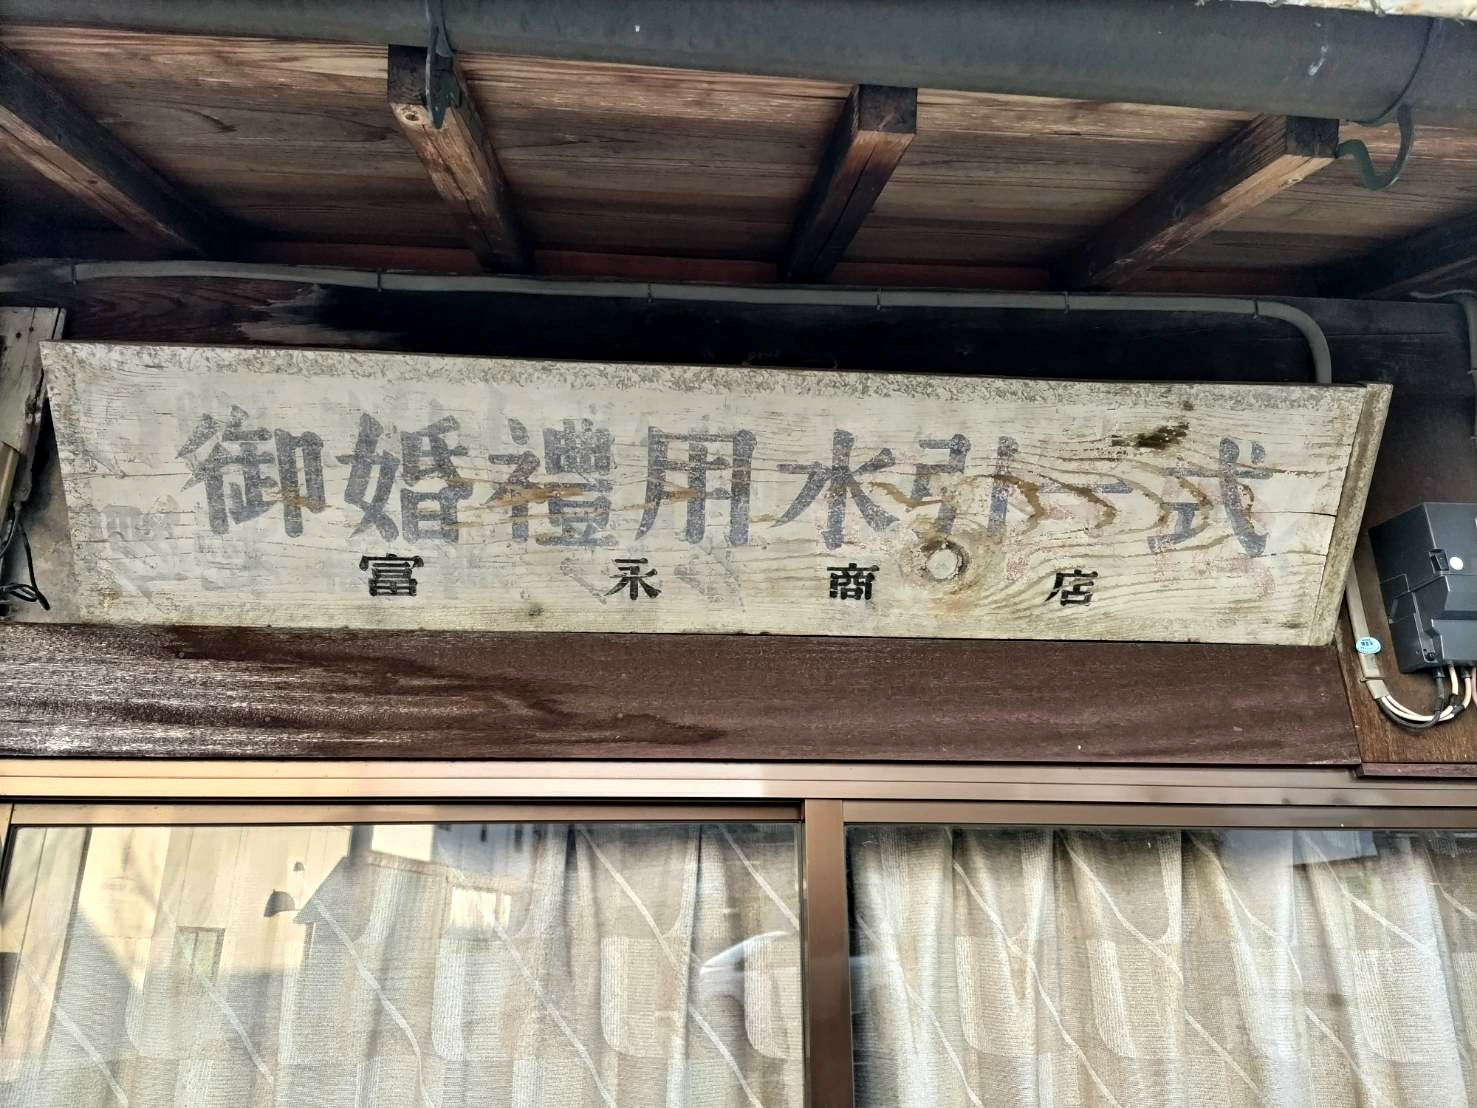 御婚禮用水引一式
富永商店